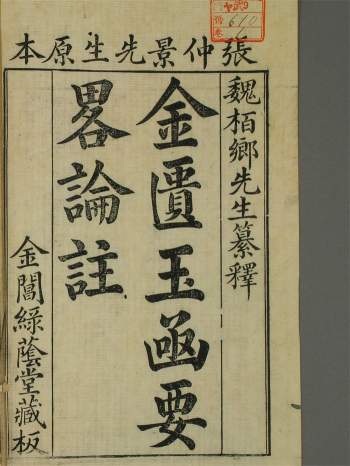 張仲景先生原本
魏栢鄉先生纂釋
金匱玉函要
畧論註
金閶綠蔭堂藏板
610